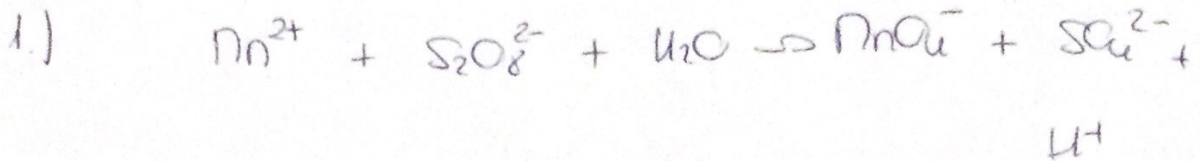 1.) Mn²⁺ + S₂O₈²⁻ + H₂O → MnO₄⁻ + SO₄²⁻ +
H⁺